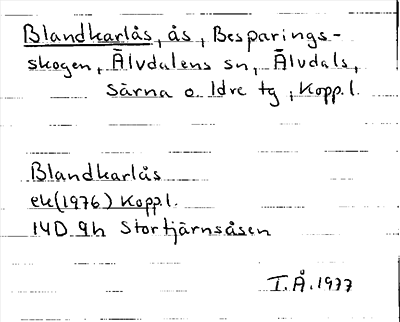 Blandkarlås, ås, Besparings-
skogen, Älvdalens sn, Älvdals,
Särna o. Idre tg, Kopp.l.
Blandkarlås
ek(1976) Kopp.l.
14D 9h Stortjärnsåsen
I.Å.1977